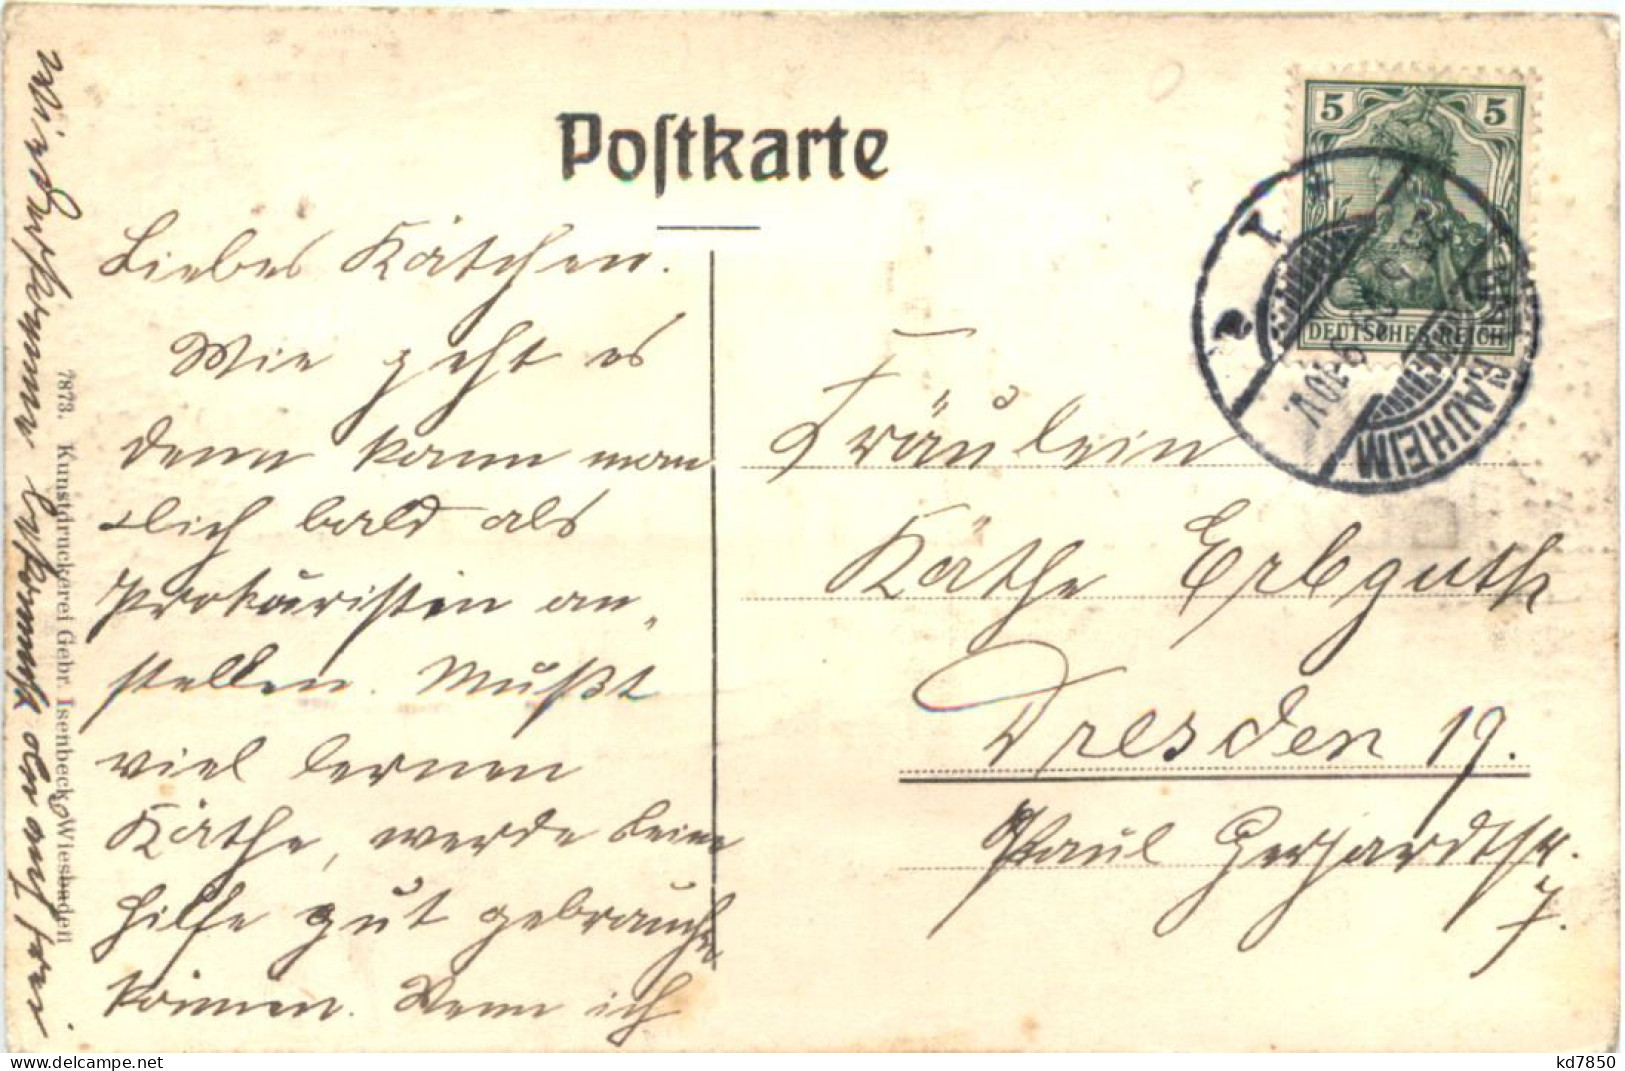 Postkarte
5 5
DEUTSCHES REICH
BAD NAUHEIM
Liebes Kätchen.
Wie geht es
denn kann man
dich bald als
Prokuristin an-
stellen. Mußt
viel lernen
Käthe, werde deine
Hilfe gut gebrauchen
können. Wenn ich
wiederkomme
auf
Fräulein
Käthe Erbguth
Dresden 19.
Paul Gerhardtstr.
7.
7873. Kunstdruckerei Gebr. Isenbeck, Wiesbaden
kd7850
https://www.delcampe.net